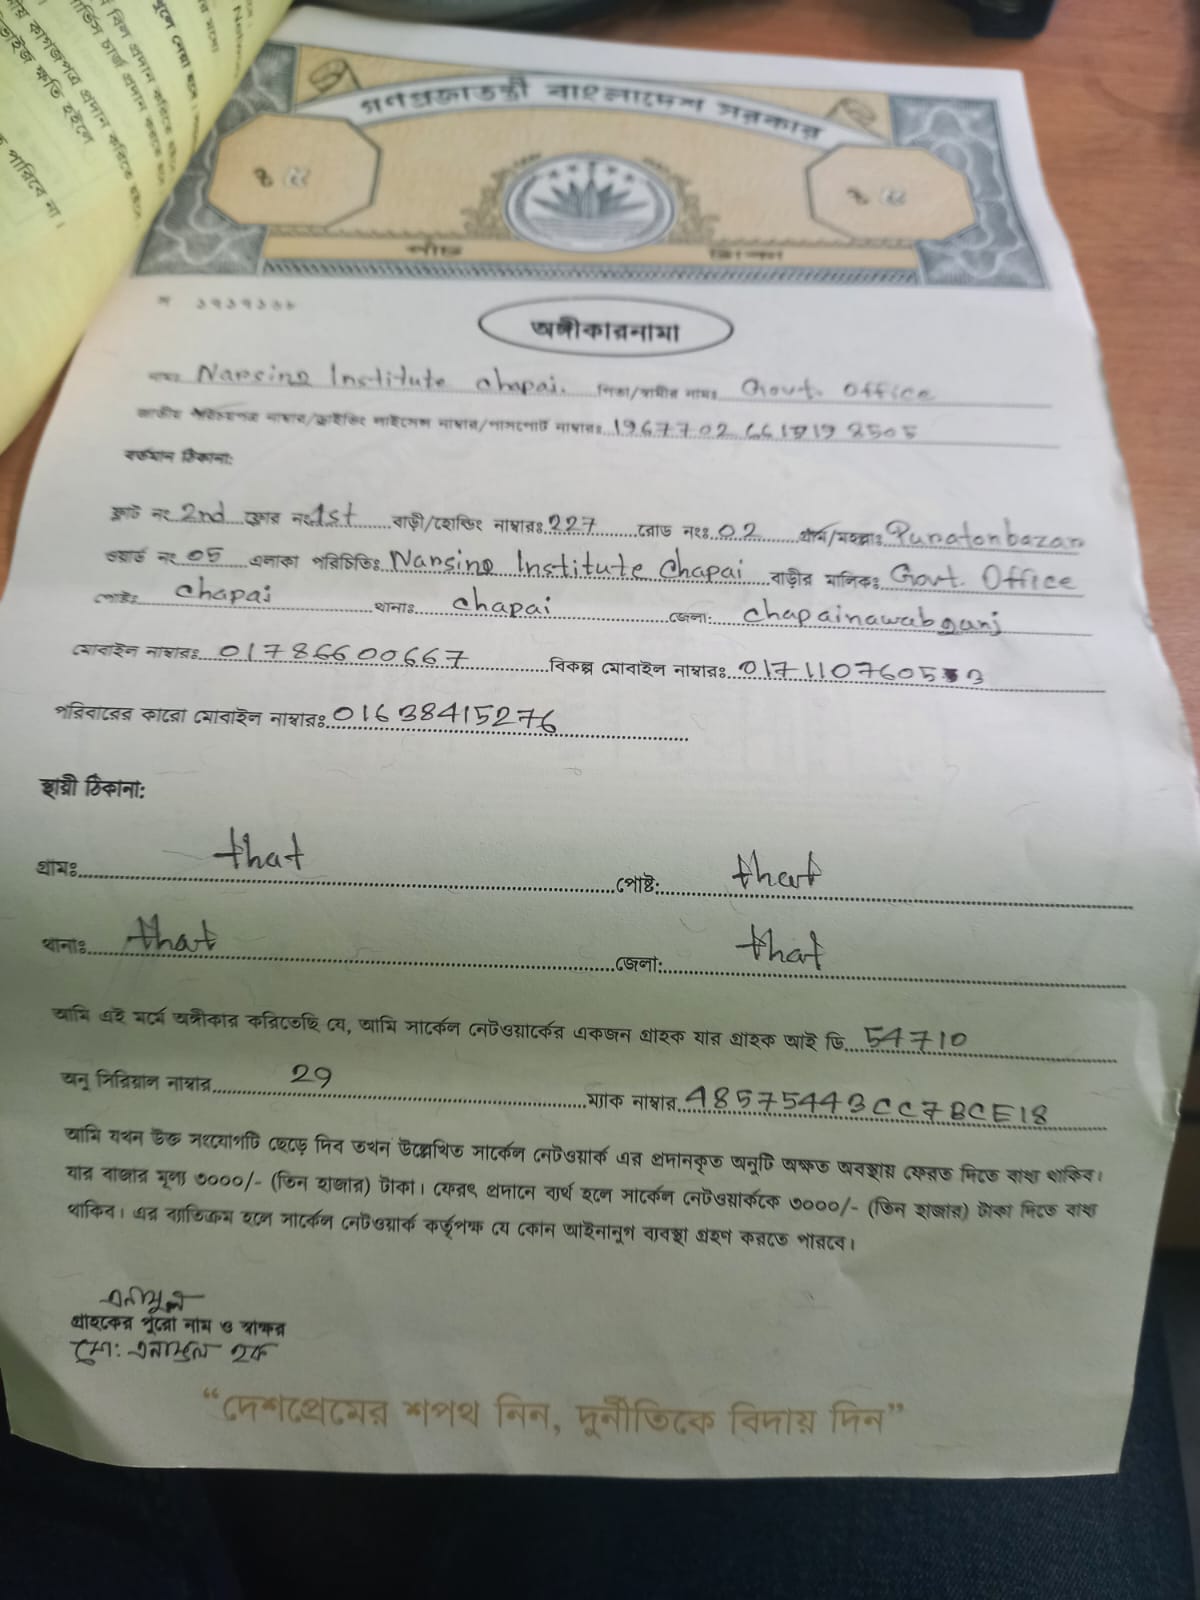 গণপ্রজাতন্ত্রী বাংলাদেশ সরকার
পাঁচ টাকা
অঙ্গীকারনামা
নামঃ Narsing Institute Chapai. পিতা/স্বামীর নামঃ Govt. Office
জাতীয় পরিচয়পত্র নাম্বার/ড্রাইভিং লাইসেন্স নাম্বার/পাসপোর্ট নাম্বারঃ
বর্তমান ঠিকানা:
ফ্লাট নং 2nd ফ্লোর নং 1st বাড়ী/হোল্ডিং নাম্বারঃ 227 রোড নংঃ 02 গ্রাম/মহল্লাঃ Puratonbazar
ওয়ার্ড নং 05 এলাকা পরিচিতিঃ Narsing Institute Chapai বাড়ীর মালিকঃ Govt. Office
পোষ্টঃ Chapai থানাঃ Chapai জেলা: Chapainawabganj
মোবাইল নাম্বারঃ 01786600667 বিকল্প মোবাইল নাম্বারঃ
পরিবারের কারো মোবাইল নাম্বারঃ 01638415276
স্থায়ী ঠিকানা:
গ্রামঃ that পোষ্ট: that
থানাঃ that জেলা: that
আমি এই মর্মে অঙ্গীকার করিতেছি যে, আমি সার্কেল নেটওয়ার্কের একজন গ্রাহক যার গ্রাহক আই ডি 54710
অনু সিরিয়াল নাম্বার 29 ম্যাক নাম্বার 48575443CC7BCE18
আমি যখন উক্ত সংযোগটি ছেড়ে দিব তখন উল্লেখিত সার্কেল নেটওয়ার্ক এর প্রদানকৃত অনুটি অক্ষত অবস্থায় ফেরত দিতে বাধ্য থাকিব।
যার বাজার মূল্য ৩০০০/- (তিন হাজার) টাকা। ফেরৎ প্রদানে ব্যর্থ হলে সার্কেল নেটওয়ার্ককে ৩০০০/- (তিন হাজার) টাকা দিতে বাধ্য
থাকিব। এর ব্যতিক্রম হলে সার্কেল নেটওয়ার্ক কর্তৃপক্ষ যে কোন আইনানুগ ব্যবস্থা গ্রহণ করতে পারবে।
এনামুল
গ্রাহকের পুরো নাম ও স্বাক্ষর
মো: এনামুল হক
“দেশপ্রেমের শপথ নিন, দুর্নীতিকে বিদায় দিন”